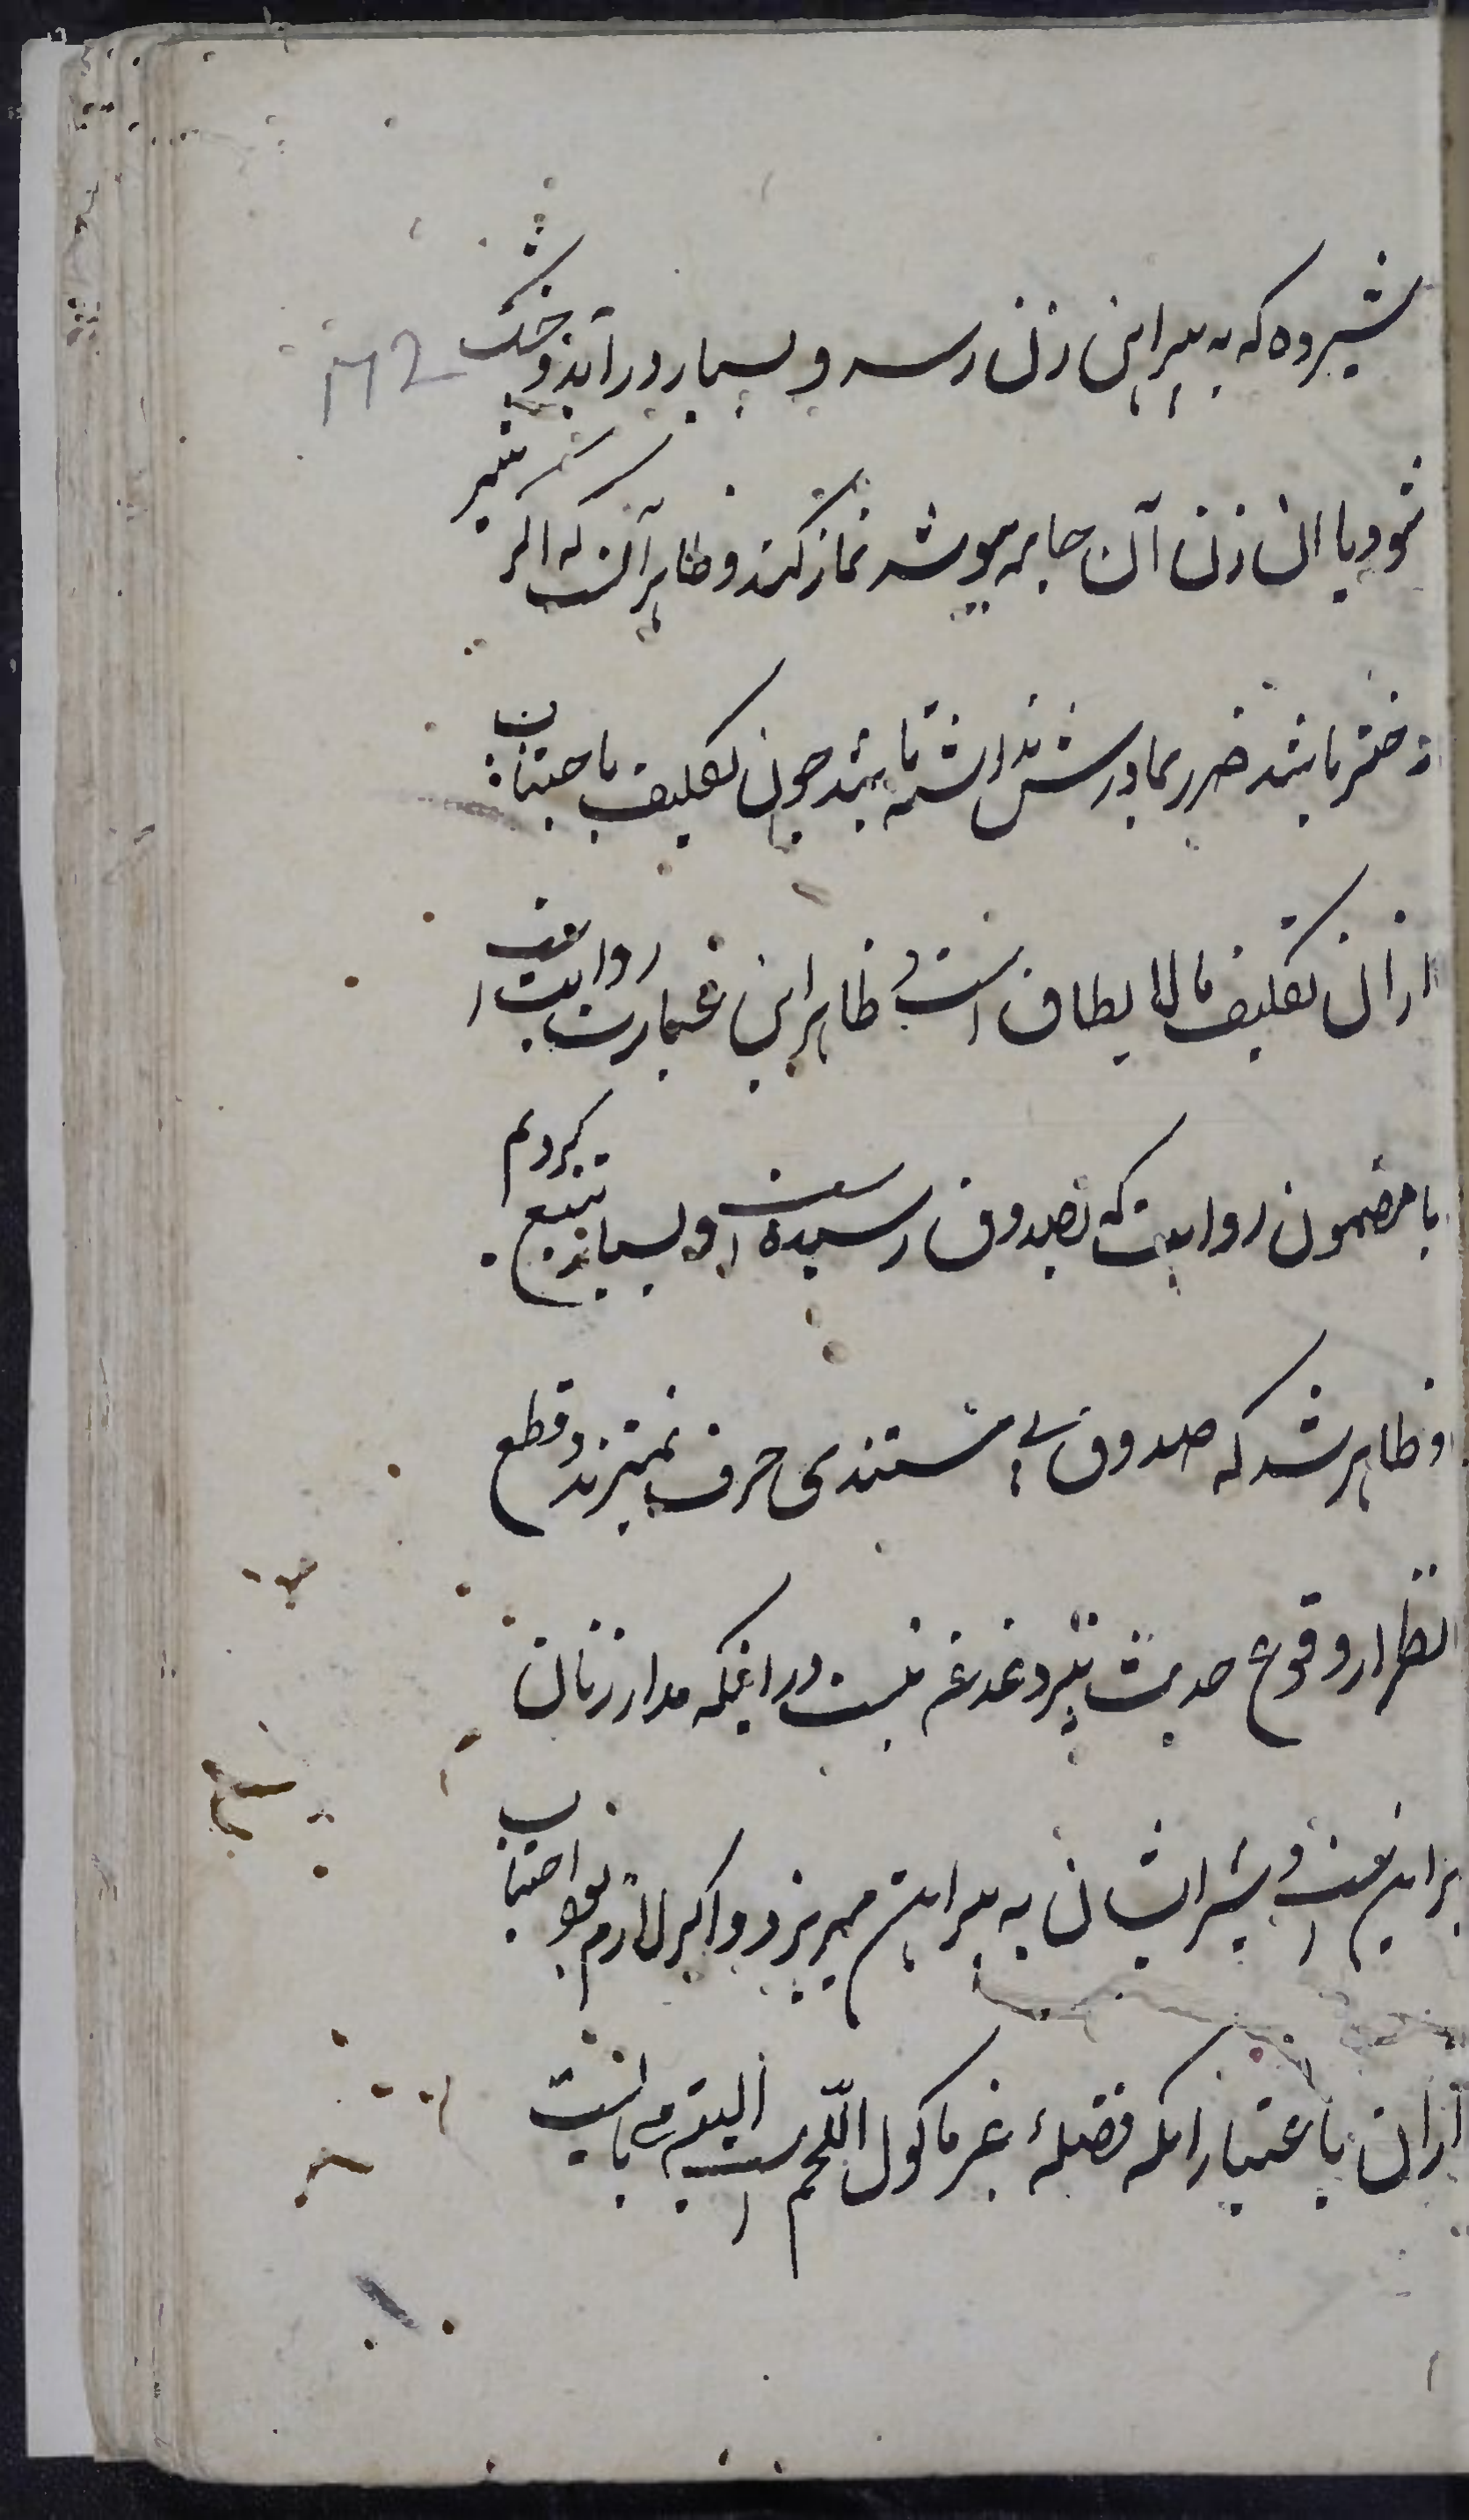 شیرده که به پیراهن زن رسد و بسیار در آید و خشک
شود یا ان زن آن جامه بپوشد نماز کند و ظاهر آنست که اگر شیر
دختر باشد ضرر بمادرش نداشته باشد چون تکلیف باجتناب
از ان تکلیف ما لا یطاق است و ظاهر این عبارت روایت است
یا مضمون روایت که بصدوق رسیده است و بسیار تتبع کردیم
و ظاهر شد که صدوق بی مستندی حرف نمیزند و قطع
نظر از وقوع حدیث نیز دغدغه نیست در اینکه مدار زنان
براین است و شیر ایشان به پیراهن میریزد و اگر لازم بود اجتناب
از ان باعتبار انکه فضلهٔ غیر ماکول اللحم است البته می بایست